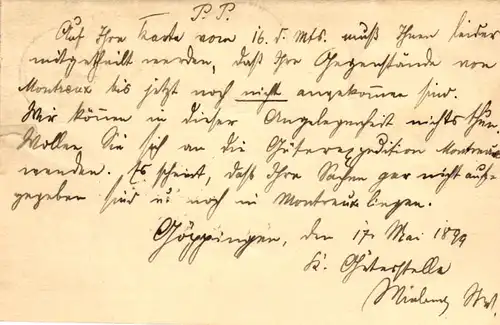 P. P.
Auf Ihre Karte vom 16. d. Mts. muß Ihnen leider
mitgetheilt werden, daß Ihre Gegenstände von
Montreux bis jetzt noch nicht angekommen sind.
Wir können in dieser Angelegenheit nichts thun.
Wollen Sie sich an die Güterexpedition Montreux
wenden. Es scheint, daß Ihre Sachen gar nicht auf-
gegeben sind u. noch in Montreux liegen.
Göppingen, den 17. Mai 1899
K. Güterstelle